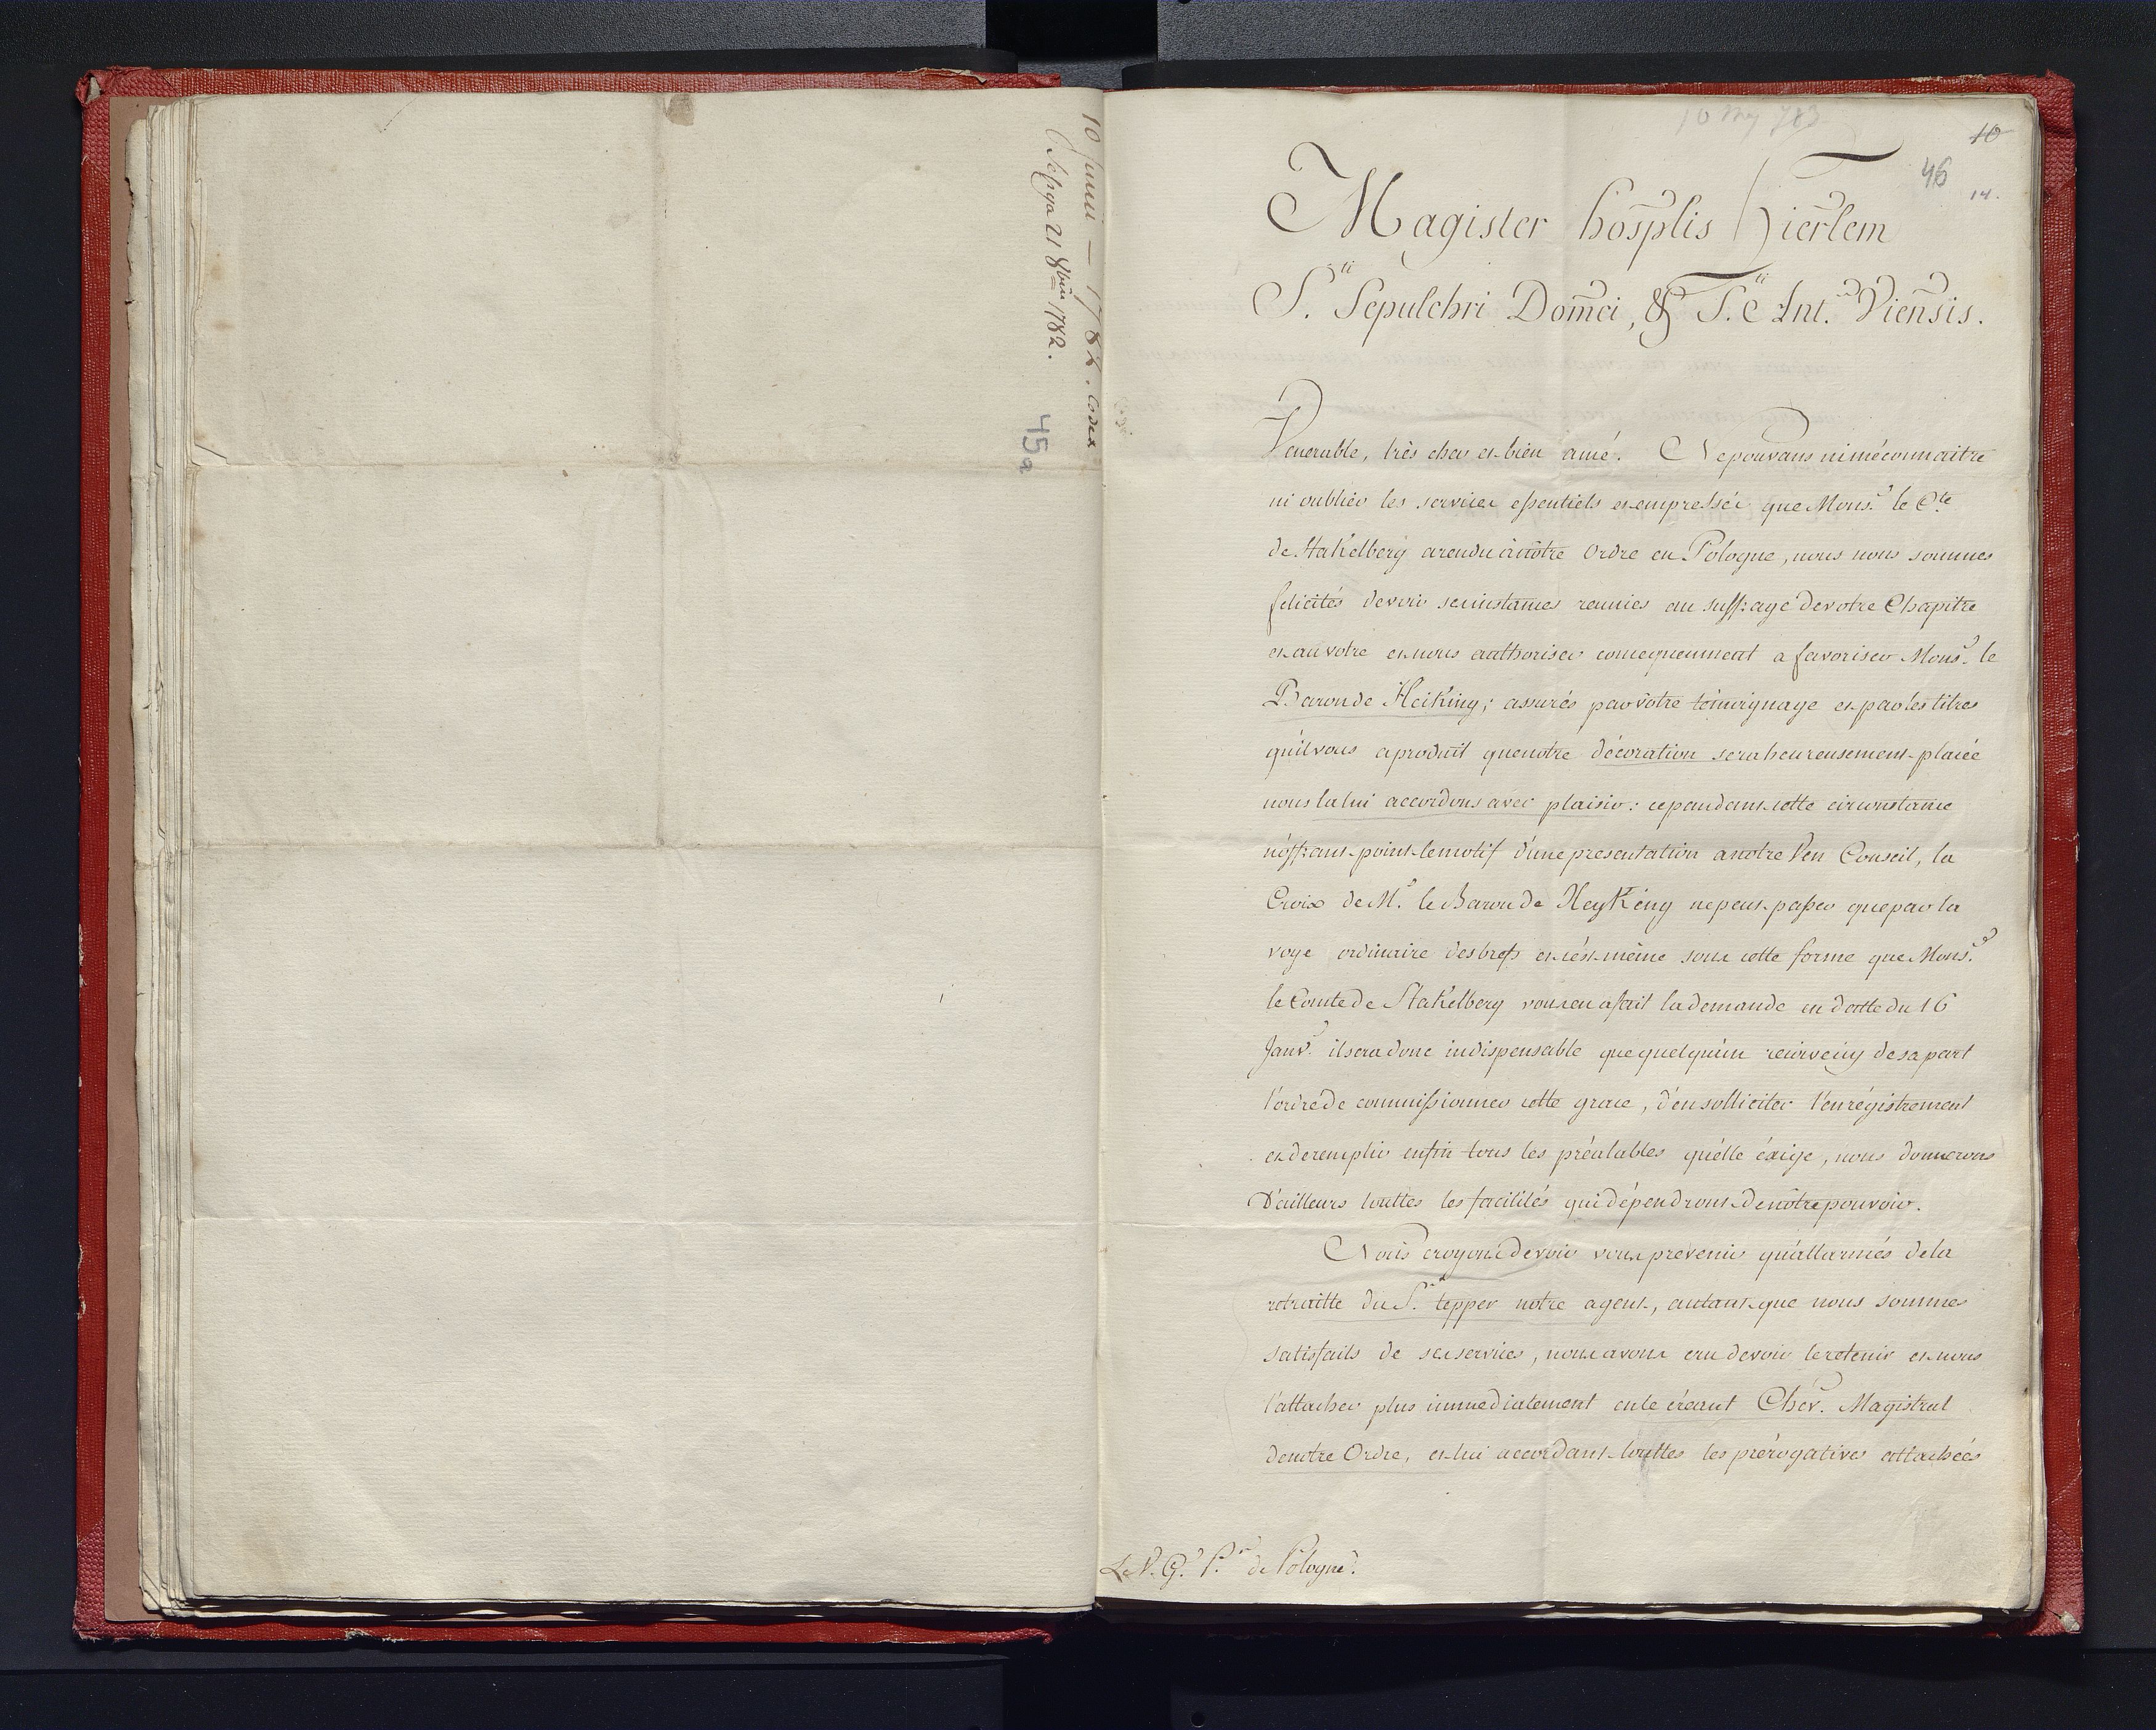 10 Junii — 1782. Codex
21 8bris 1782.
45a
10 May 783
10
46
14.
Magister hosplis Hierlem
S.ti Sepulchri Domci, & S.ti Ant. Viensis.
Venerable, très cher et bien amé. Ne pouvans ni méconnaitre
ni oublier les services essentiels et empressés que Mons.r le C.te
de Stakelberg a rendu à nôtre Ordre en Pologne, nous nous sommes
felicités de voir ses instances reunies au suffrage de votre Chapitre
et au votre et nous authoriser consequemment a favoriser Mons.r le
Baron de Heiking; assurés par vôtre témoignage et par les titres
qu'il vous a produit que nôtre décoration sera heureusement placée
nous la lui accordons avec plaisir: cependant cette circonstance
n'offrant point le motif d'une presentation a notre Ven Conseil, la
Croix de M.r le Baron de HeyKing ne peut passer que par la
voye ordinaire des brefs et c'ést même sous cette forme que Mons.r
le Comte de Stakelberg vous en a fait la demande en datte du 16
Janv.r il sera donc indispensable que quelqu'un recoive icy de sa part
l'ordre de commissionner cette grace, d'en solliciter l'enrégistrement
et de remplir enfin tous les préalables qu'élle éxige, nous donnerons
D'ailleurs touttes les facilités qui dépendront de nôtre pouvoir.
Nous croyons devoir vous prevenir qu'allarmés de la
retraitte du S.r tepper notre agent, autant que nous sommes
satisfaits de ses services, nous avons cru devoir le retenir et nous
l'attacher plus immediatement en le créant Chev.r Magistral
de notre Ordre, et lui accordant touttes les prérogatives attachées
Le V. G.d P.r de Pologne.